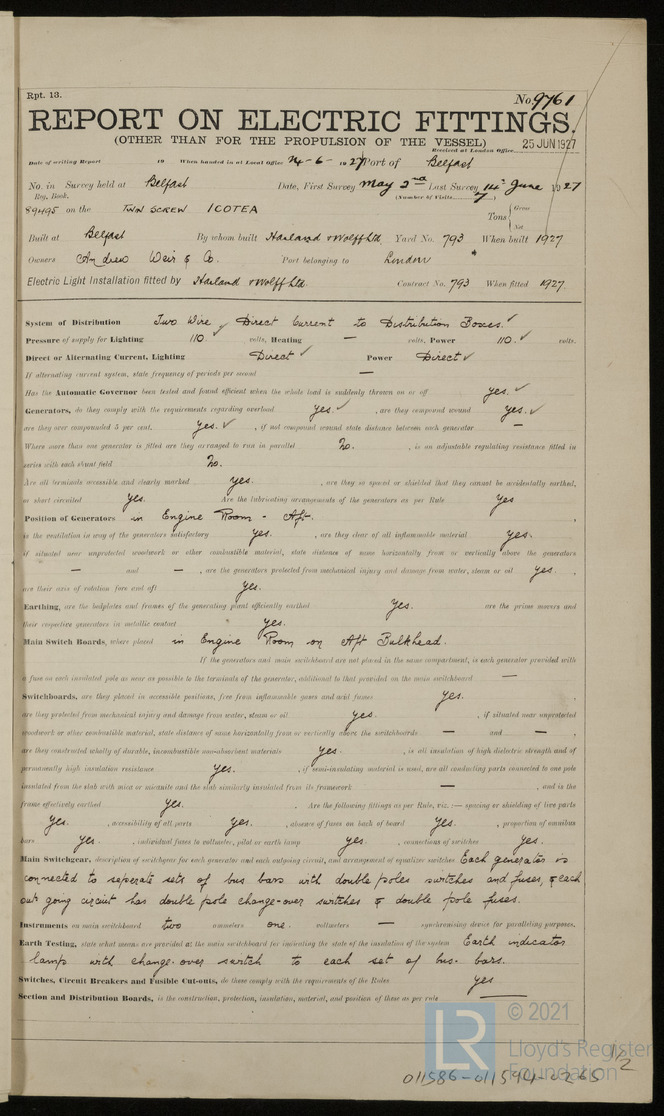 Rpt. 13.
No. 9761
REPORT ON ELECTRIC FITTINGS.
(OTHER THAN FOR THE PROPULSION OF THE VESSEL)
Received at London Office 25 JUN 1927
Date of writing Report 19 When handed in at Local Office 14-6-1927 Port of Belfast
No. in Survey held at Belfast Date, First Survey May 2nd Last Survey 14th June 1927
Reg. Book. (Number of Visits 7)
89495 on the TWIN SCREW ICOTEA Tons { Gross
Net
Built at Belfast By whom built Harland & Wolff Ltd. Yard No. 793 When built 1927
Owners Andrew Weir & Co. Port belonging to London
Electric Light Installation fitted by Harland & Wolff Ltd. Contract No. 793 When fitted 1927.
System of Distribution Two Wire Direct Current to Distribution Boxes.
Pressure of supply for Lighting 110 volts, Heating — volts, Power 110 volts.
Direct or Alternating Current, Lighting Direct Power Direct
If alternating current system, state frequency of periods per second —
Has the Automatic Governor been tested and found efficient when the whole load is suddenly thrown on or off yes.
Generators, do they comply with the requirements regarding overload yes. , are they compound wound yes.
are they over compounded 5 per cent. yes. , if not compound wound state distance between each generator —
Where more than one generator is fitted are they arranged to run in parallel No. , is an adjustable regulating resistance fitted in
series with each shunt field No.
Are all terminals accessible and clearly marked yes. , are they so spaced or shielded that they cannot be accidentally earthed,
or short circuited yes. Are the lubricating arrangements of the generators as per Rule yes
Position of Generators in Engine Room - Aft.
is the ventilation in way of the generators satisfactory yes. , are they clear of all inflammable material yes.
if situated near unprotected woodwork or other combustible material, state distance of same horizontally from or vertically above the generators
— and — , are the generators protected from mechanical injury and damage from water, steam or oil yes. ,
are their axes of rotation fore and aft yes.
Earthing, are the bedplates and frames of the generating plant efficiently earthed yes. are the prime movers and
their respective generators in metallic contact yes.
Main Switch Boards, where placed in Engine Room on Aft Bulkhead.
If the generators and main switchboard are not placed in the same compartment, is each generator provided with
a fuse on each insulated pole as near as possible to the terminals of the generator, additional to that provided on the main switchboard —
Switchboards, are they placed in accessible positions, free from inflammable gases and acid fumes yes. ,
are they protected from mechanical injury and damage from water, steam or oil yes. , if situated near unprotected
woodwork or other combustible material, state distance of same horizontally from or vertically above the switchboards — and — ,
are they constructed wholly of durable, incombustible non-absorbent materials yes. , is all insulation of high dielectric strength and of
permanently high insulation resistance yes. , if semi-insulating material is used, are all conducting parts connected to one pole
insulated from the slab with mica or micanite and the slab similarly insulated from its framework — , and is the
frame effectively earthed yes. . Are the following fittings as per Rule, viz. :— spacing or shielding of live parts
yes. , accessibility of all parts yes. , absence of fuses on back of board yes. , proportion of omnibus
bars yes. , individual fuses to voltmeter, pilot or earth lamp yes. , connections of switches yes.
Main Switchgear, description of switchgear for each generator and each outgoing circuit, and arrangement of equalizer switches Each generator is
connected to seperate sets of bus bars with double poles switches and fuses, & each
out going circuit has double pole change-over switches & double pole fuses.
Instruments on main switchboard two ammeters one. voltmeters — synchronising device for paralleling purposes.
Earth Testing, state what means are provided at the main switchboard for indicating the state of the insulation of the system Earth indicator
lamp with change-over switch to each set of bus-bars.
Switches, Circuit Breakers and Fusible Cut-outs, do these comply with the requirements of the Rules yes
Section and Distribution Boards, is the construction, protection, insulation, material, and position of these as per rule —
© 2021
LR
Lloyd's Register
Foundation
1/2
011586-011594-0265